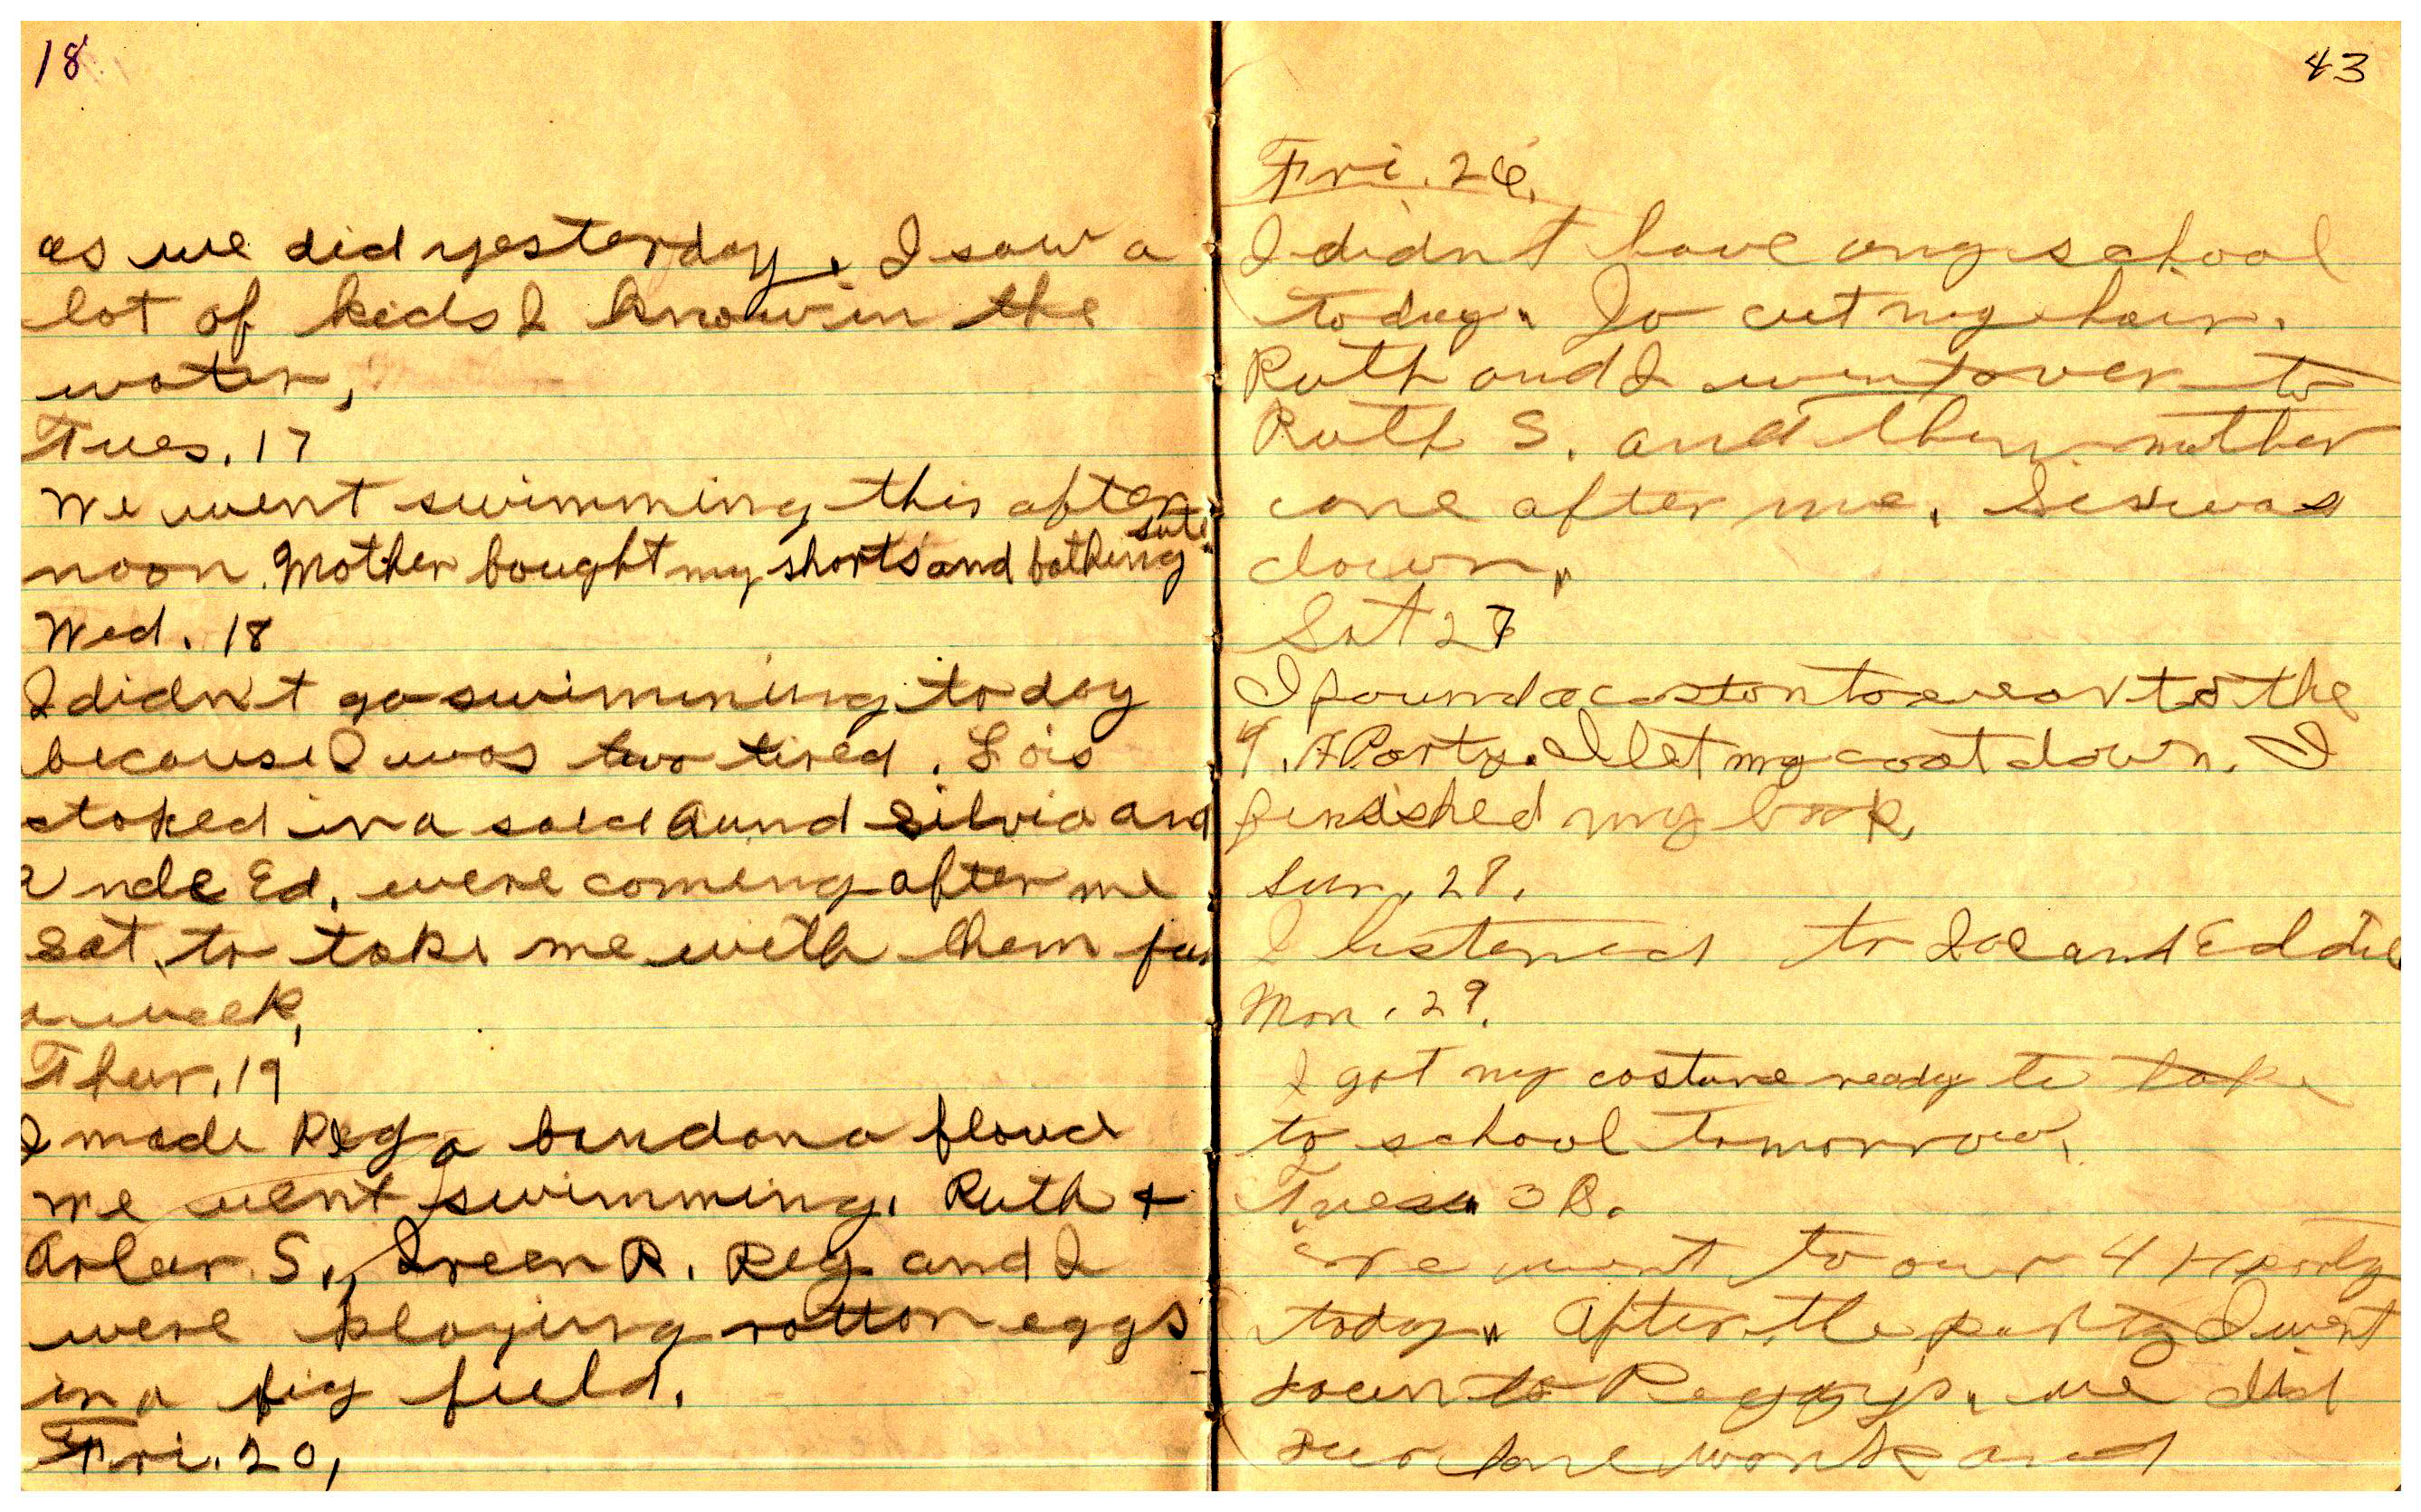 18
as we did yesterday. I saw a
lot of kids I know in the
water,
Tues. 17
We went swimming this after
noon. Mother bought my shorts and bathing sute.
Wed. 18
I didn't go swimming today
because I was two tired. Lois
stoped in a said Aund Silvia and
Uncle Ed. were coming after me
sat. to take me with them for
a week,
Thur. 19
I made Peg a bandana
We went swimming. Ruth +
Arlar S., Ireen R. Peg and I
were playing rotton eggs
in a fig field.
Fri. 20,
43
Fri. 26.
I didn't have any school
today. Jo cut my hair.
Ruth and I went over to
Ruth S. and then mother
come after me. Sis was
down.
Sat 27
I found a coston to wear to the
4. H Party. I let my coat down. I
finished my book,
Sun. 28.
I listened to Joe and Eddie
Mon. 29.
I got my costume ready to take
to school tomorrow.
Tues. 30.
We went to our 4 H party
today. After the party I went
down to Peggy's. we did
our home work and